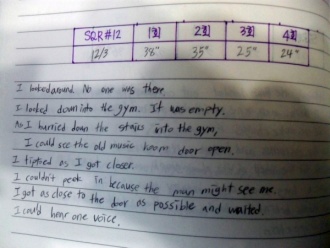 SQR#12 1회 2회 3회 4회
12/3 38" 35" 25" 24"
I looked around. No one was there.
I looked down into the gym. It was empty.
As I hurried down the stairs into the gym,
I could see the old music room door open.
I tiptied as I got closer.
I couldn't peek in because the man might see me.
I got as close to the door as possible and waited.
I could hear one voice.